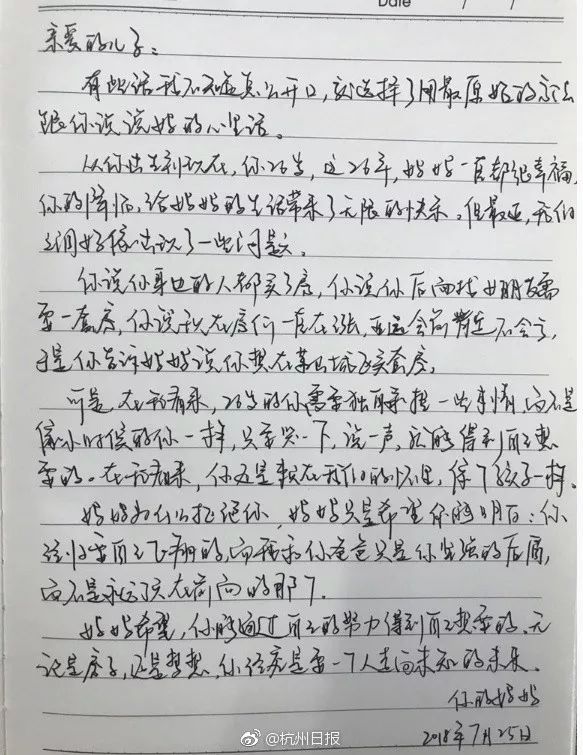 Date / /
亲爱的儿子：
有些话我不知道怎么开口，就选择了用最原始的方法
跟你说说妈的心里话。
从你出生到现在，你26岁，这26年，妈妈一直都很幸福，
你的降临，给妈妈的生活带来了无限的快乐。但最近，我们
之间好像出现了一些问题。
你说你身边的人都买了房，你说你后面找女朋友需
要一套房，你说现在房价一直在涨，亚运会前肯定不会亏，
于是你告诉妈妈说你想在某城买套房。
可是，在我看来，26岁的你需要独自承担一些事情，而不是
像小时候的你一样，只要哭一下，说一声，就能得到自己想
要的。在我看来，你还是躺在我们的怀里，像个孩子一样。
妈妈为什么拒绝你，妈妈只是希望你能明白：你
终归要自己飞翔的，而我和你爸爸只是你坚强的后盾，
而不是永远顶在前面的那个。
妈妈希望，你能通过自己的努力得到自己想要的。无
论是房子，还是梦想，你终究是要一个人走向未知的未来。
你的妈妈
2018年7月25日
@杭州日报